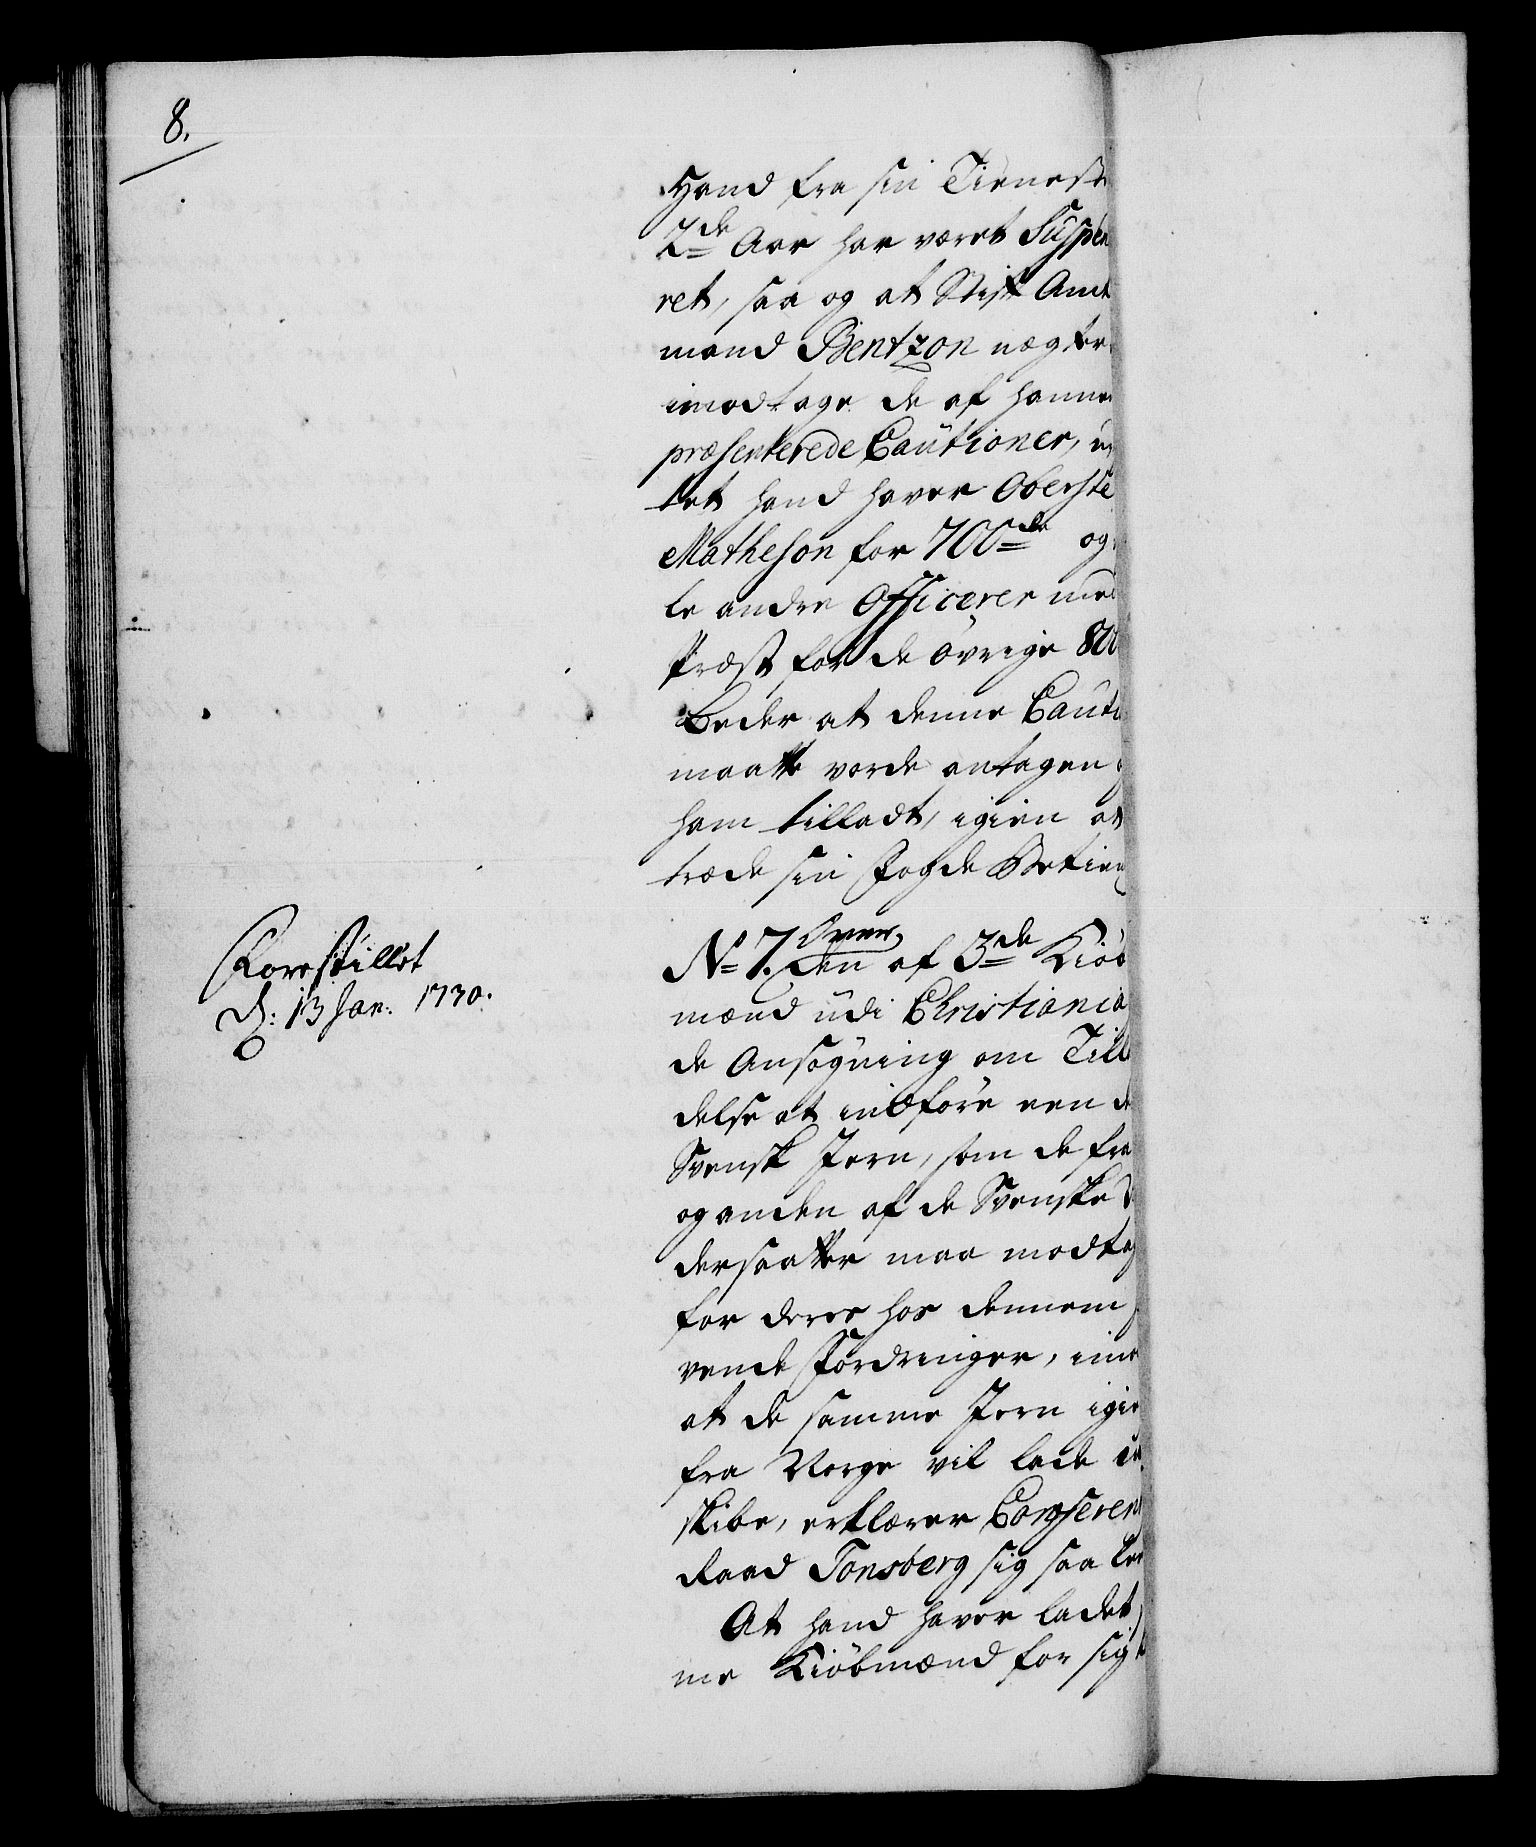 8.
Hand fra sin Tieneste
2de Aar har været Suspen
ret, saa og at Stift Amt
mand Bentzon nægter
imodtage de af hannem
præsenterede Cautioner,
tet hand haver Oberste
Matheson for 700de og
le andre Officerer med
Præst for de øvrige 800
Beder at denne Cauti
maatte vorde antagen
ham tilladt, igien at
træde sin Fogde Betien
Forestillet
d: 13 Jan: 1730.
No 7. Over
den af 3de Kiöb
mænd udi Christiania
de Ansøgning om Till
delse at indføre een de
Svensk Jern, som de fra
og anden af de Svenske
dersaatter maa modtag
for deres hos dennem
vende Fordringer, imod
at de samme Jern igien
fra Norge vil lade ud
skibe, erklærer Conferenz
Raad Tonsberg sig saa led
At hand haver ladet
me Kiöbmænd for sig